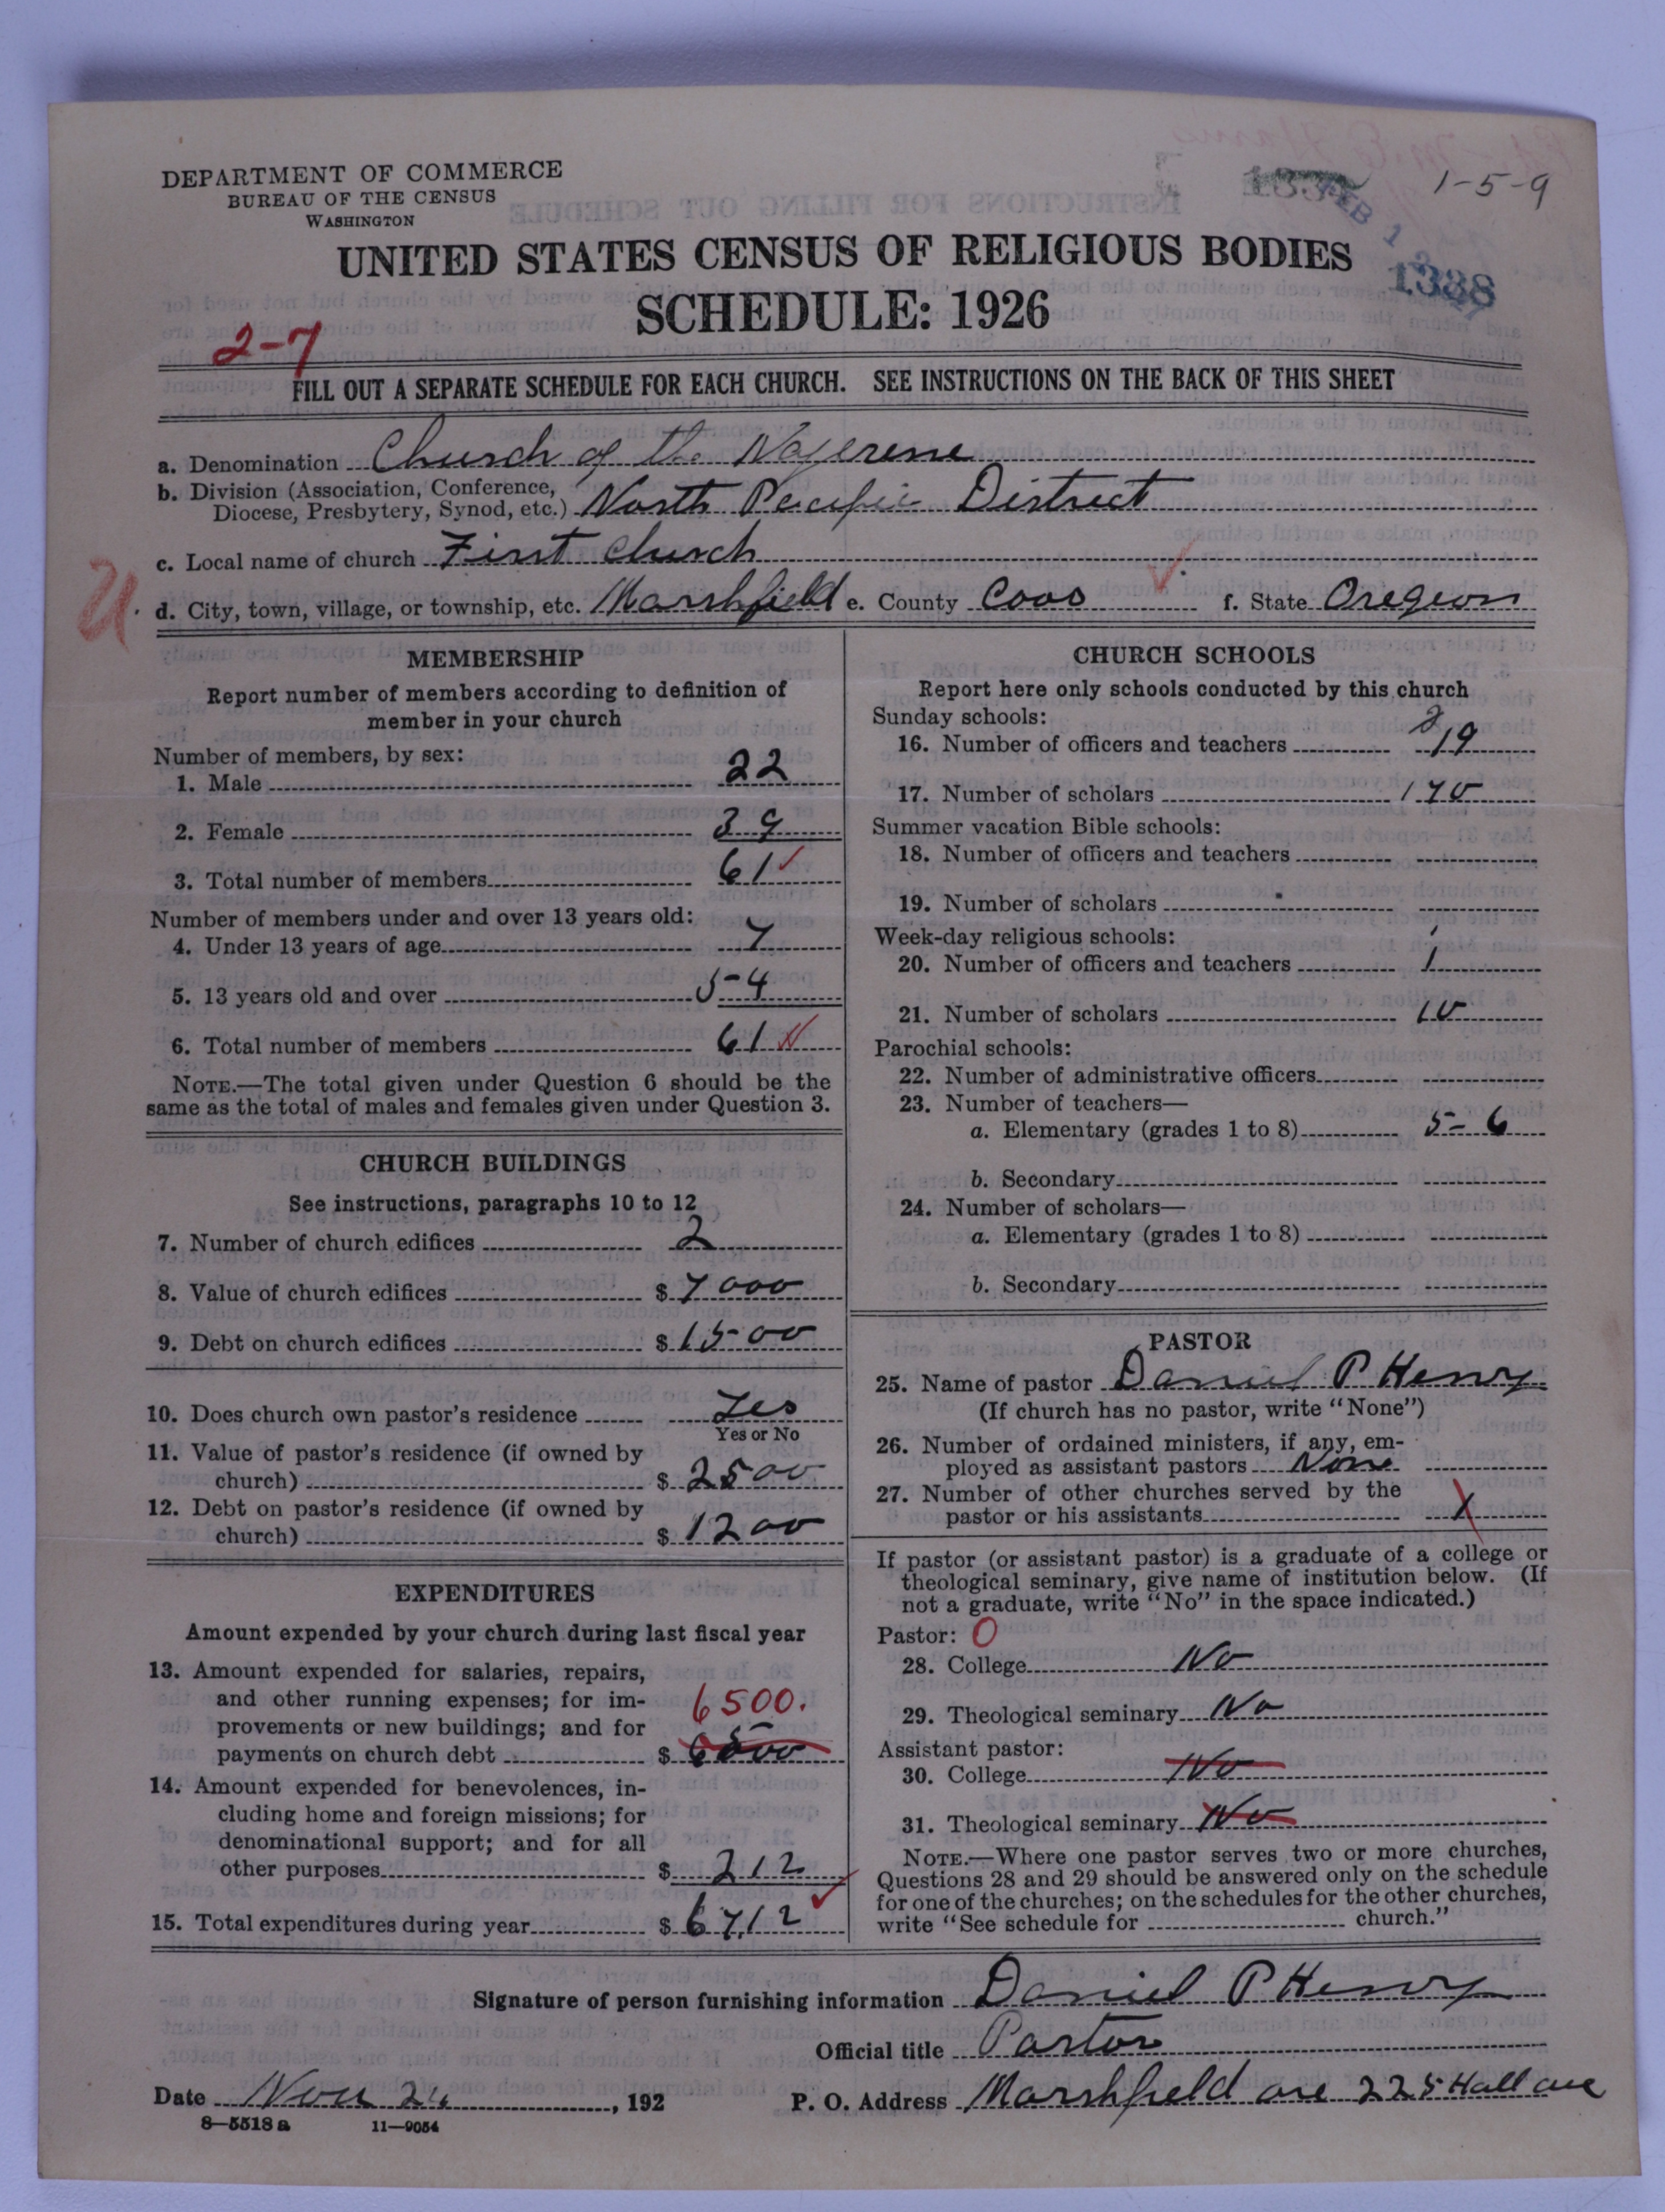 DEPARTMENT OF COMMERCE
BUREAU OF THE CENSUS
WASHINGTON
1-5-9
UNITED STATES CENSUS OF RELIGIOUS BODIES
1338
SCHEDULE: 1926
2-7
FILL OUT A SEPARATE SCHEDULE FOR EACH CHURCH. SEE INSTRUCTIONS ON THE BACK OF THIS SHEET
a. Denomination Church of the Nazerene
b. Division (Association, Conference,
Diocese, Presbytery, Synod, etc.) North Pacific District
c. Local name of church First Church
U. d. City, town, village, or township, etc. Marshfield e. County Coos f. State Oregeon
MEMBERSHIP
Report number of members according to definition of
member in your church
Number of members, by sex:
1. Male 22
2. Female 39
3. Total number of members 61 ✓
Number of members under and over 13 years old:
4. Under 13 years of age 7
5. 13 years old and over 54
6. Total number of members 61
NOTE.—The total given under Question 6 should be the
same as the total of males and females given under Question 3.
CHURCH BUILDINGS
See instructions, paragraphs 10 to 12
7. Number of church edifices 2
8. Value of church edifices $ 7000
9. Debt on church edifices $ 1500
10. Does church own pastor's residence Yes
Yes or No
11. Value of pastor's residence (if owned by
church) $ 2500
12. Debt on pastor's residence (if owned by
church) $ 1200
EXPENDITURES
Amount expended by your church during last fiscal year
13. Amount expended for salaries, repairs,
and other running expenses; for im-
6500.
provements or new buildings; and for
payments on church debt $
14. Amount expended for benevolences, in-
cluding home and foreign missions; for
denominational support; and for all
other purposes $ 212
15. Total expenditures during year $ 6712 ✓
CHURCH SCHOOLS
Report here only schools conducted by this church
Sunday schools:
2
16. Number of officers and teachers 19
17. Number of scholars 170
Summer vacation Bible schools:
18. Number of officers and teachers
19. Number of scholars
Week-day religious schools:
20. Number of officers and teachers 1
21. Number of scholars 10
Parochial schools:
22. Number of administrative officers
23. Number of teachers—
a. Elementary (grades 1 to 8) 5-6
b. Secondary
24. Number of scholars—
a. Elementary (grades 1 to 8)
b. Secondary
PASTOR
25. Name of pastor Daniel P Henry
(If church has no pastor, write "None")
26. Number of ordained ministers, if any, em-
ployed as assistant pastors None
27. Number of other churches served by the
pastor or his assistants
If pastor (or assistant pastor) is a graduate of a college or
theological seminary, give name of institution below. (If
not a graduate, write "No" in the space indicated.)
Pastor: 0
28. College No
29. Theological seminary No
Assistant pastor:
30. College No
31. Theological seminary No
NOTE.—Where one pastor serves two or more churches,
Questions 28 and 29 should be answered only on the schedule
for one of the churches; on the schedules for the other churches,
write "See schedule for church."
Signature of person furnishing information Daniel P Henry
Official title Pastor
Date Nov 24, 192
P. O. Address Marshfield ore 225 Hall ave
8-5518a 11-9054